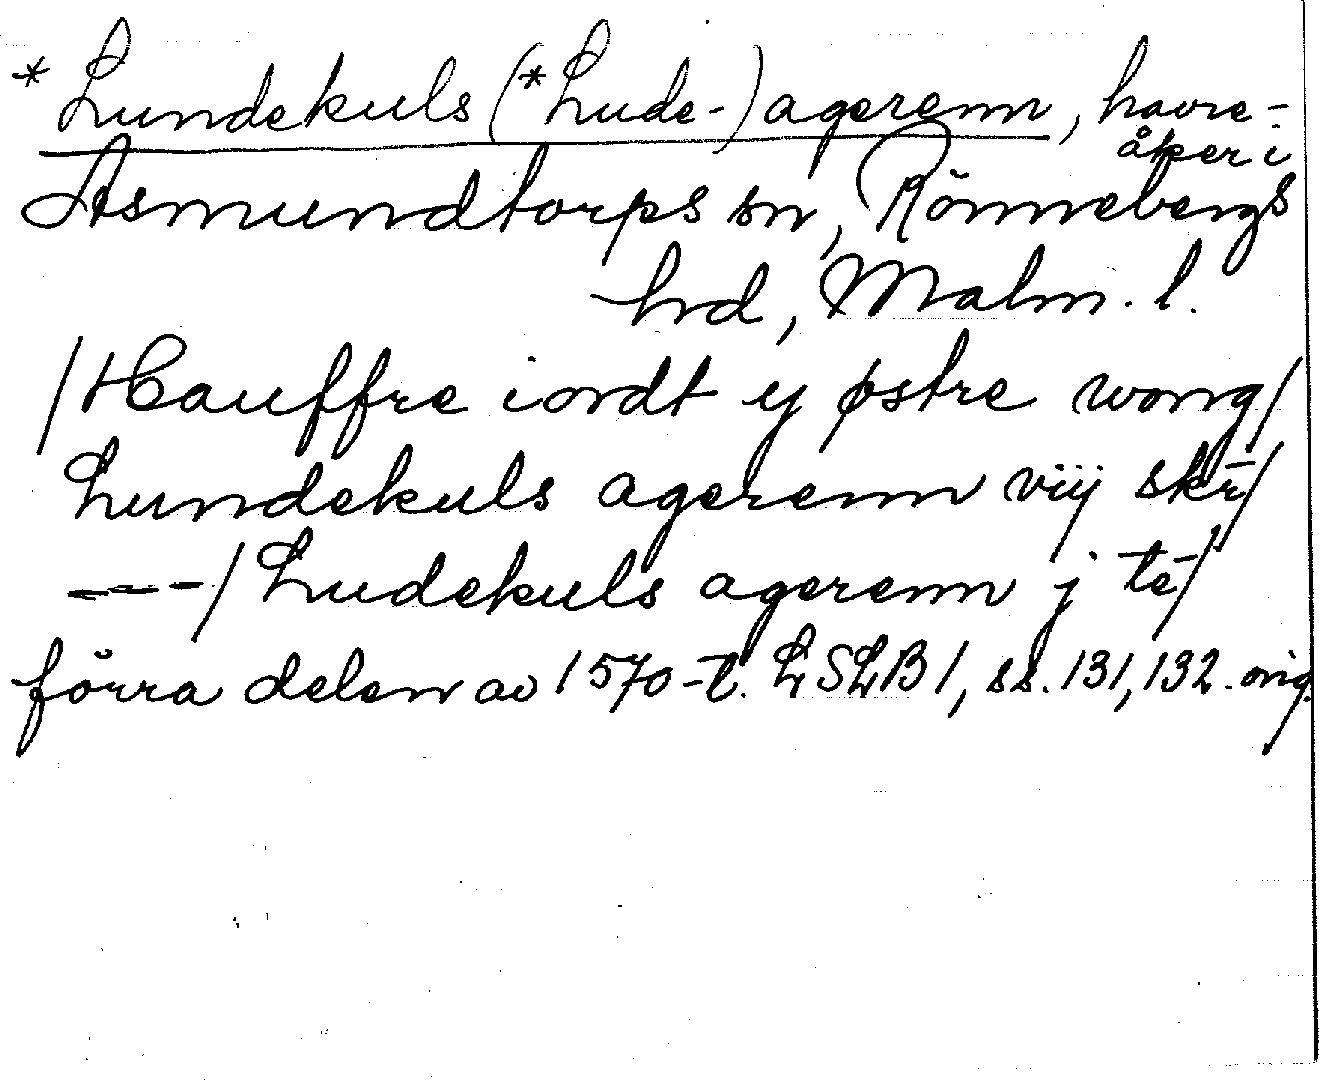 *Lundekuls (*Lude-) agerenn, havre-
åker i
Asmundtorps sn, Rönnebergs
hd, Malm. l.
/Hauffre iordt y østre wong/
Lundekuls agerenn viij skr̄/
---/Ludekuls agerenn j tē/
förra delen av 1570-t. LSLB 1, ss. 131, 132. orig.